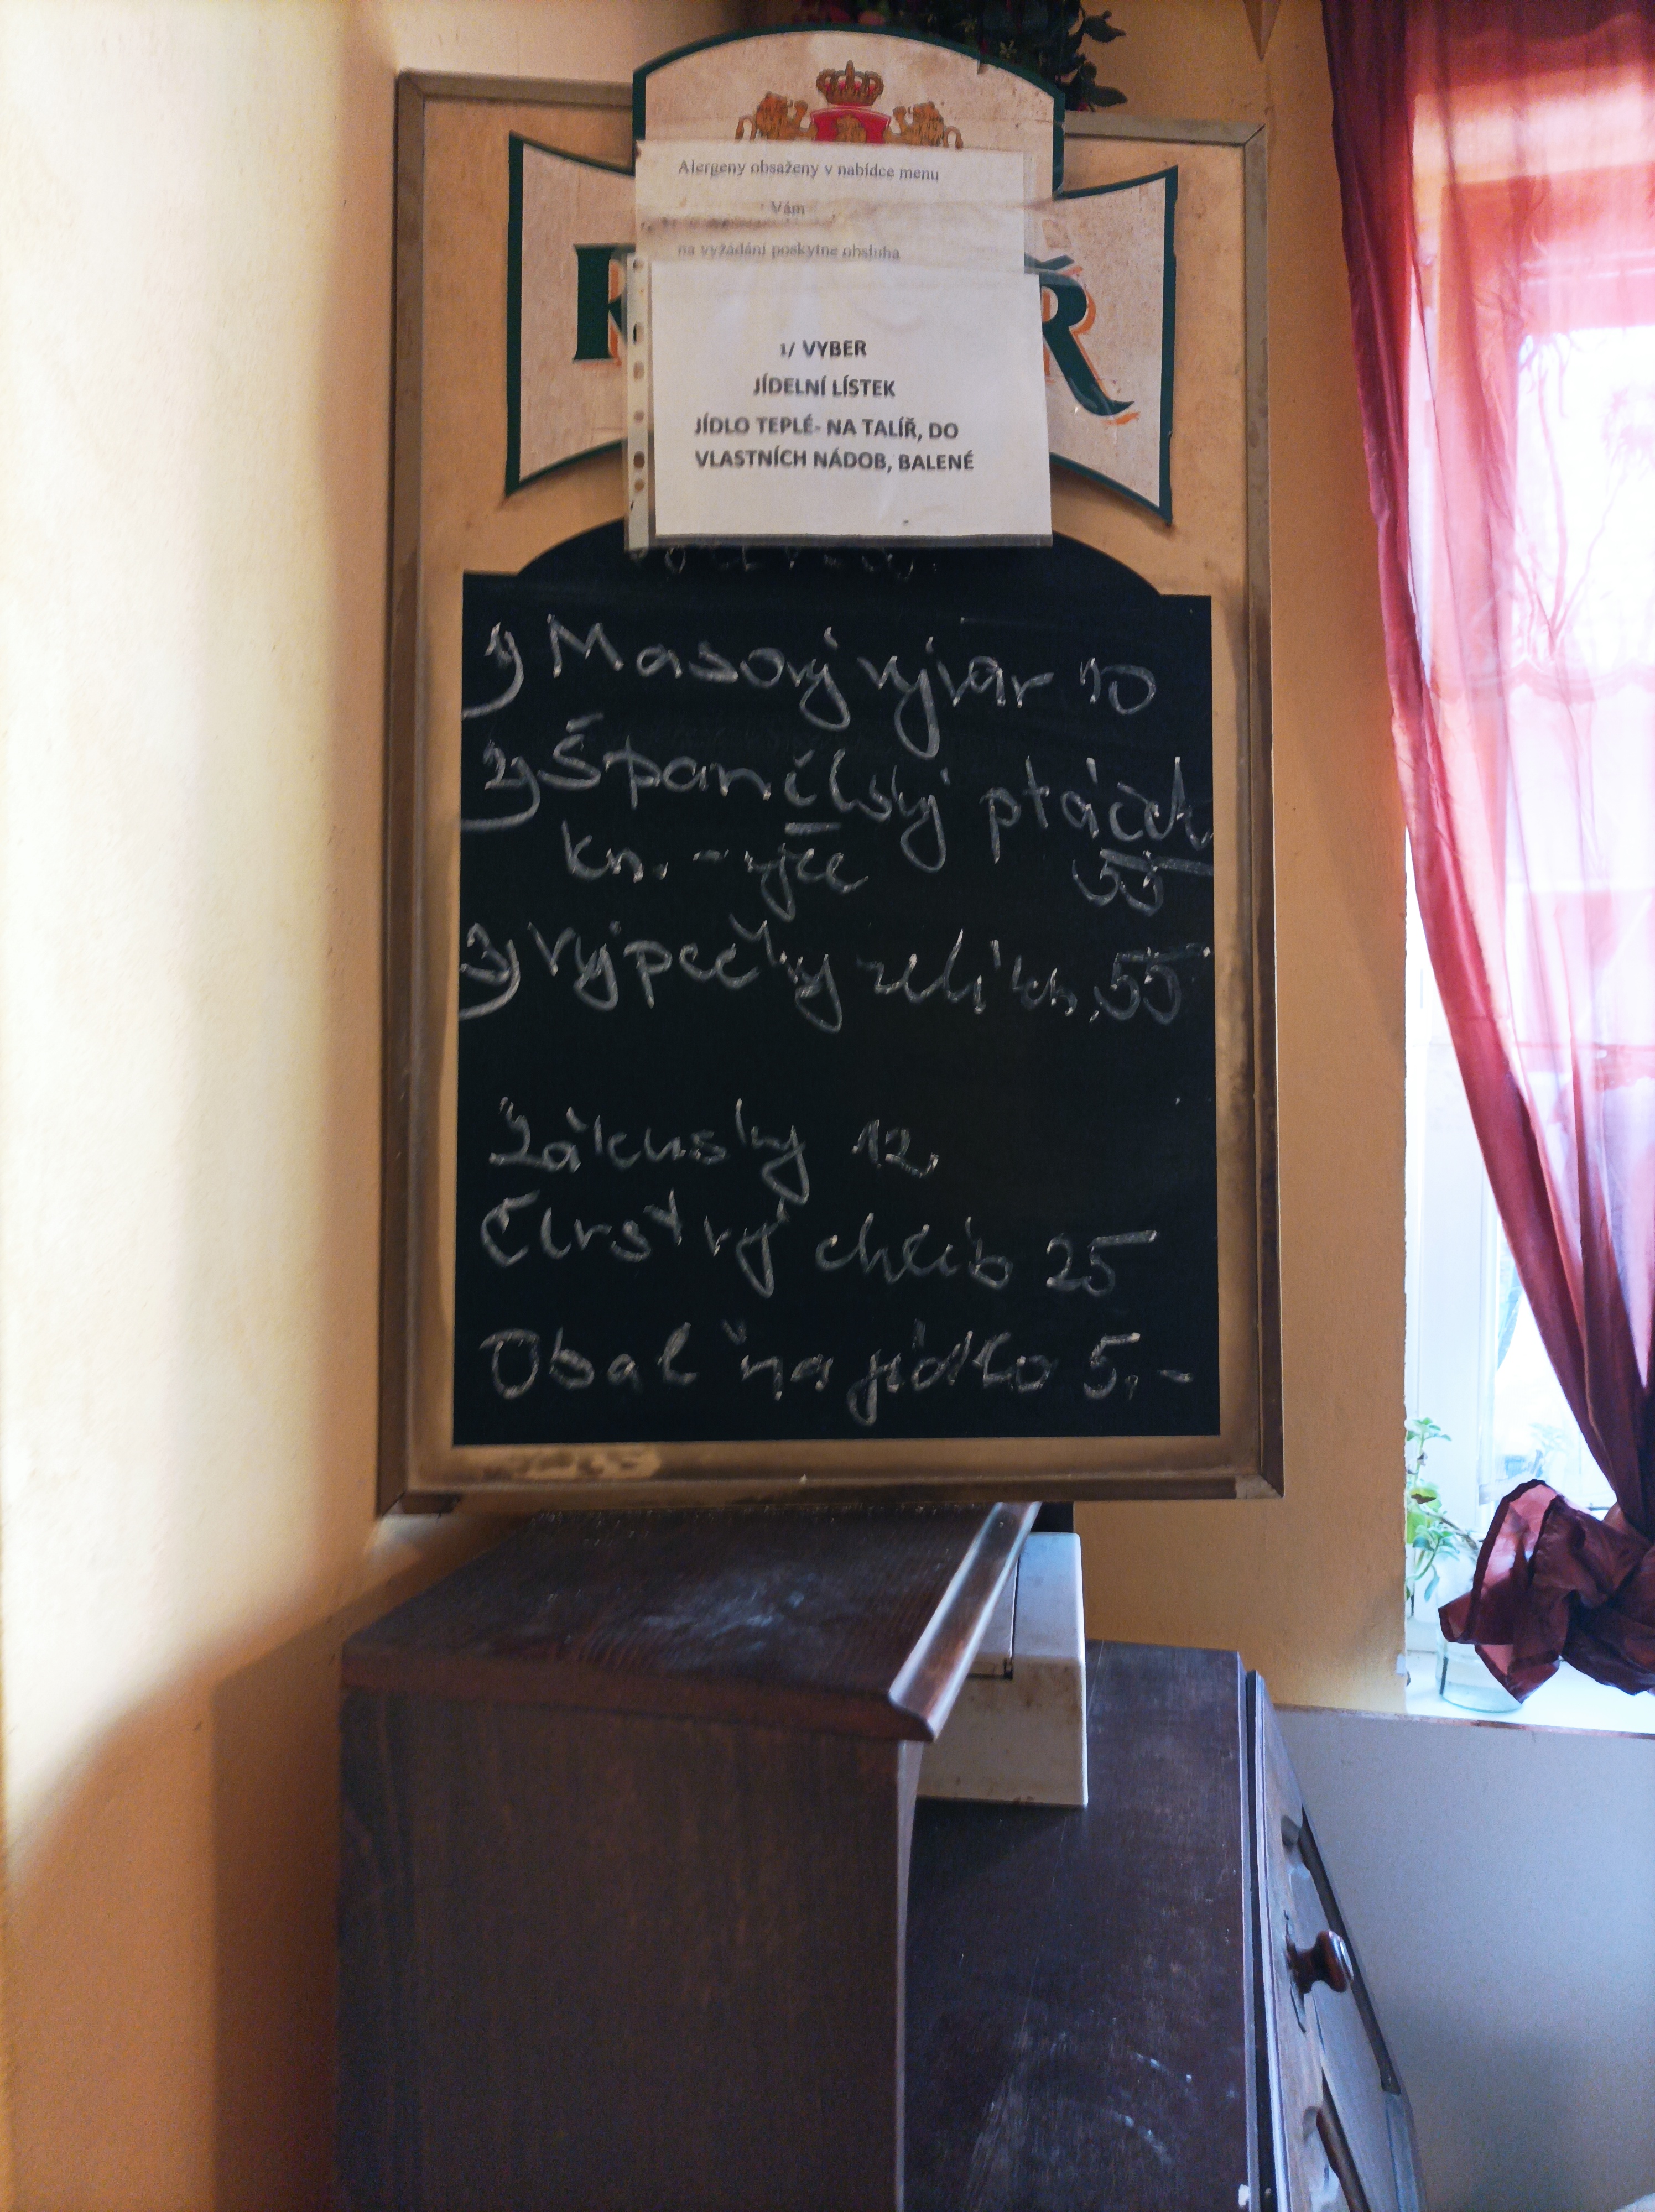 Alergeny obsaženy v nabídce menu
Vám
na vyžádání poskytne obsluha
1/ VYBER
JÍDELNÍ LÍSTEK
JÍDLO TEPLÉ- NA TALÍŘ, DO
VLASTNÍCH NÁDOB, BALENÉ
1) Masový vývar 10
2) Španělský ptáček
kn. - rýže 55
3) Výpečky zelí kn. 55
Zákusky 12,
Čerstvý chléb 25
Obal na jídlo 5,-